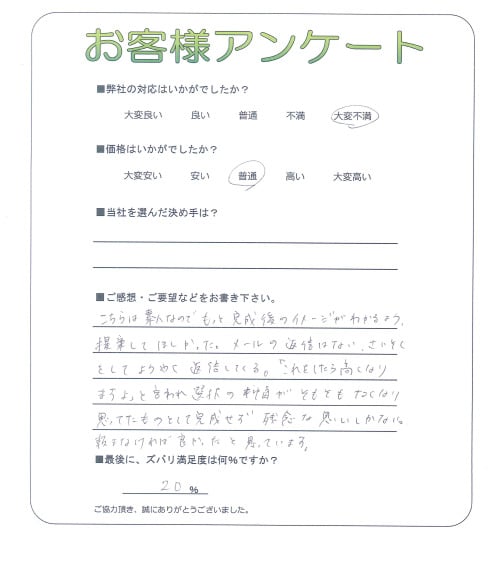 お客様アンケート
■弊社の対応はいかがでしたか？
大変良い 良い 普通 不満 大変不満
■価格はいかがでしたか？
大変安い 安い 普通 高い 大変高い
■当社を選んだ決め手は？
■ご感想・ご要望などをお書き下さい。
こちらは素人なのでもっと完成後のイメージがわかるよう、
提案してほしかった。メールの返信はない、さいそく
をしてようやく返信してくる。「これをしたら高くなり
ますよ」と言われ選択の余地がそもそもなくなり
思ってたものとして完成せず残念な思いしかない。
頼まなければ良かったと思っています。
■最後に、ズバリ満足度は何％ですか？
20 ％
ご協力頂き、誠にありがとうございました。